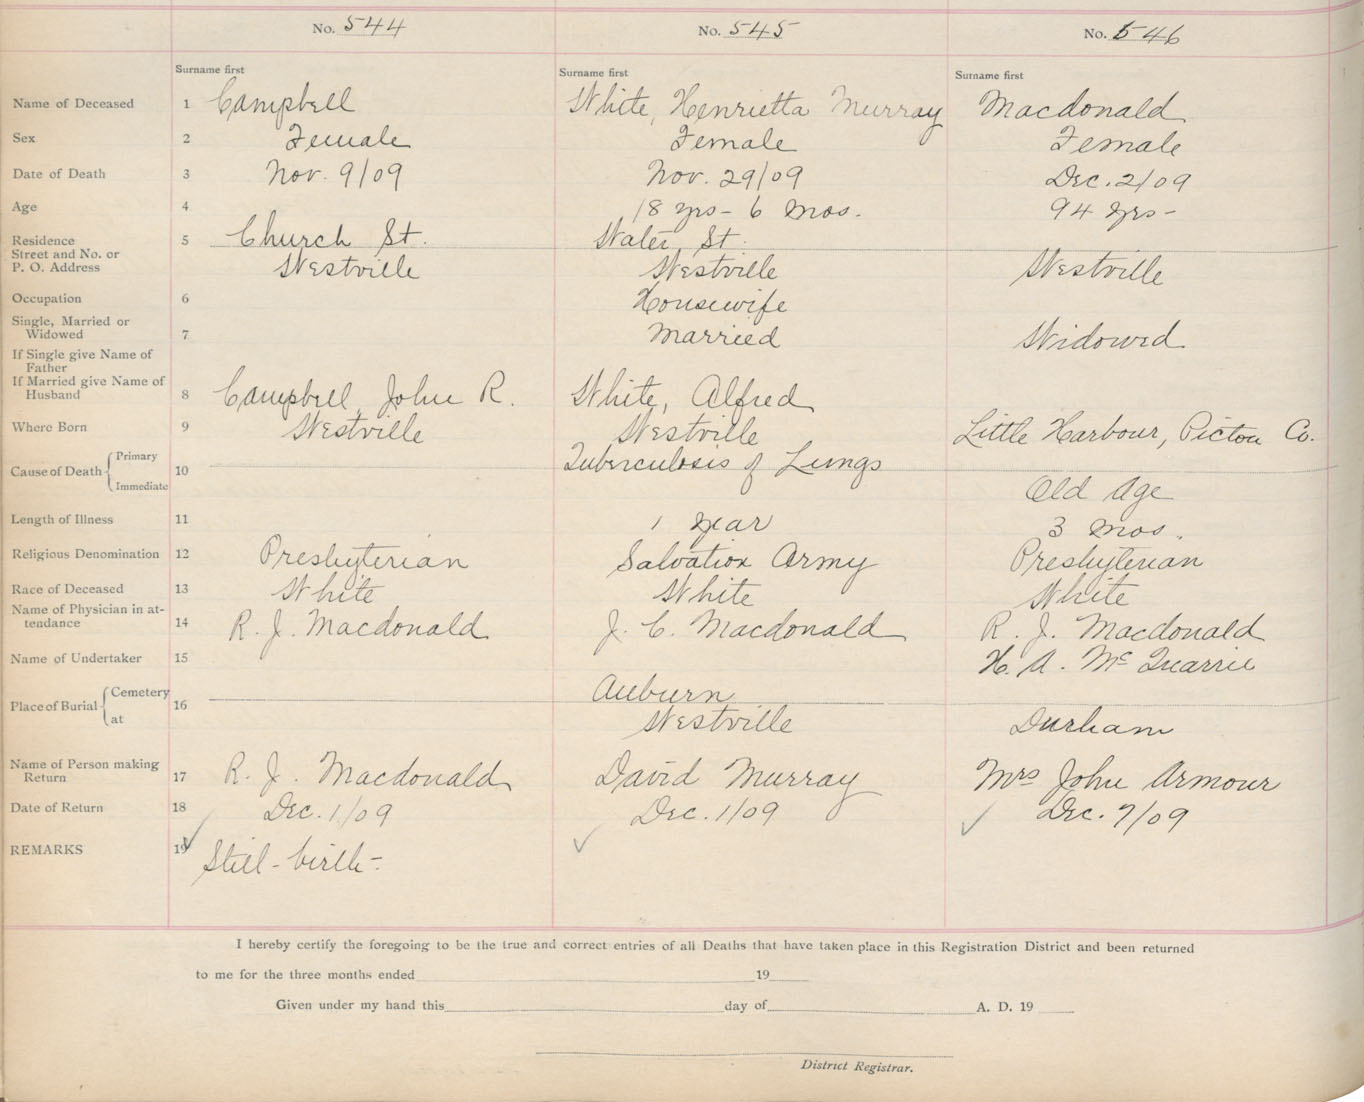 No. 544 No. 545 No. 546
Surname first Surname first Surname first
Name of Deceased 1 Campbell White, Henrietta Murray Macdonald
Sex 2 Female Female Female
Date of Death 3 Nov. 9/09 Nov. 29/09 Dec. 2/09
Age 4 18 yrs - 6 mos. 94 yrs -
Residence 5 Church St. Water St.
Street and No. or
P. O. Address Westville Westville Westville
Occupation 6 Housewife
Single, Married or
Widowed 7 Married Widowed
If Single give Name of
Father
If Married give Name of
Husband 8 Campbell, John R. White, Alfred
Where Born 9 Westville Westville Little Harbour, Pictou Co.
Cause of Death Primary 10 Tuberculosis of Lungs
Immediate Old Age
Length of Illness 11 1 year 3 mos.
Religious Denomination 12 Presbyterian Salvation Army Presbyterian
Race of Deceased 13 White White White
Name of Physician in at-
tendance 14 R. J. Macdonald J. C. Macdonald R. J. Macdonald
Name of Undertaker 15 H. A. McQuarrie
Place of Burial Cemetery 16 Auburn
at Westville Durham
Name of Person making
Return 17 R. J. Macdonald David Murray Mrs John Armour
Date of Return 18 Dec. 1/09 Dec. 1/09 Dec. 7/09
REMARKS 19 Still-birth-
I hereby certify the foregoing to be the true and correct entries of all Deaths that have taken place in this Registration District and been returned
to me for the three months ended 19
Given under my hand this day of A. D. 19
District Registrar.